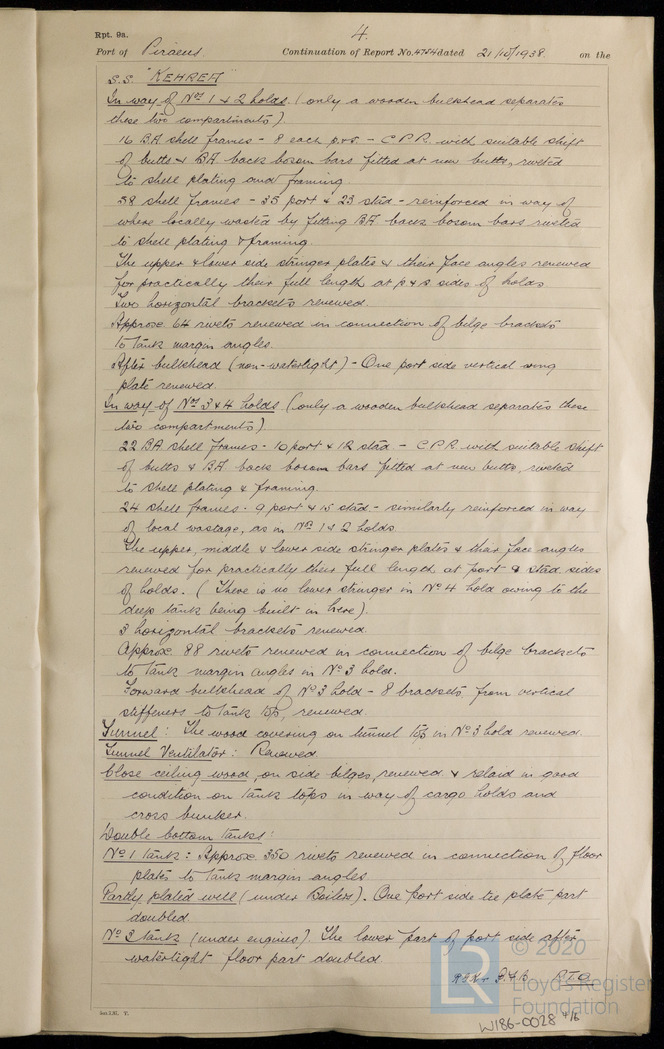 Rpt. 9a.
4.
Port of Piraeus. Continuation of Report No. 4754 dated 21/10/1938. on the
S.S. "KEHREA"
In way of Nos 1 & 2 holds. (only a wooden bulkhead separates
these two compartments).
16 BA shell frames - 8 each p&s. - C.P.R. with suitable shift
of butts & BA back bosom bars fitted at new butts, riveted
to shell plating and framing.
58 shell frames - 35 port & 23 stbd - reinforced in way of
where locally wasted by fitting BA back bosom bars riveted
to shell plating & framing.
The upper & lower side stringer plates & their face angles renewed
for practically their full length at p & s sides of holds
Two horizontal brackets renewed.
Approx. 64 rivets renewed in connection of bilge brackets
to tank margin angles.
After bulkhead (non-watertight) - One port side vertical wing
plate renewed.
In way of Nos 3 & 4 holds (only a wooden bulkhead separates these
two compartments)
22 BA shell frames - 10 port & 12 stbd. - C.P.R. with suitable shift
of butts & BA back bosom bars fitted at new butts, riveted
to shell plating & framing.
24 shell frames - 9 port & 15 stbd - similarly reinforced in way
of local wastage, as in Nos 1 & 2 holds.
The upper, middle & lower side stringer plates & their face angles
renewed for practically their full length at port & stbd sides
of holds. (There is no lower stringer in No 4 hold owing to the
deep tank being built in here).
3 horizontal brackets renewed.
Approx. 88 rivets renewed in connection of bilge brackets
to tank margin angles in No 3 hold.
Forward bulkhead of No 3 hold - 8 brackets from vertical
stiffeners to tank top, renewed.
Tunnel: The wood covering on tunnel top in No 3 hold renewed.
Tunnel Ventilator: Renewed.
Close ceiling wood, on side bilges, renewed & relaid in good
condition on tank tops in way of cargo holds and
cross bunker.
Double bottom tanks:
No 1 tank: Approx 350 rivets renewed in connection of floor
plates to tank margin angles
Partly plated well (under Boilers). One port side tie plate part
doubled.
No 3 tank (under engines). The lower part of port side after
watertight floor part doubled.
P.T.O.
© 2020
LR
Lloyd's Register
Foundation
W186-0028 4/6